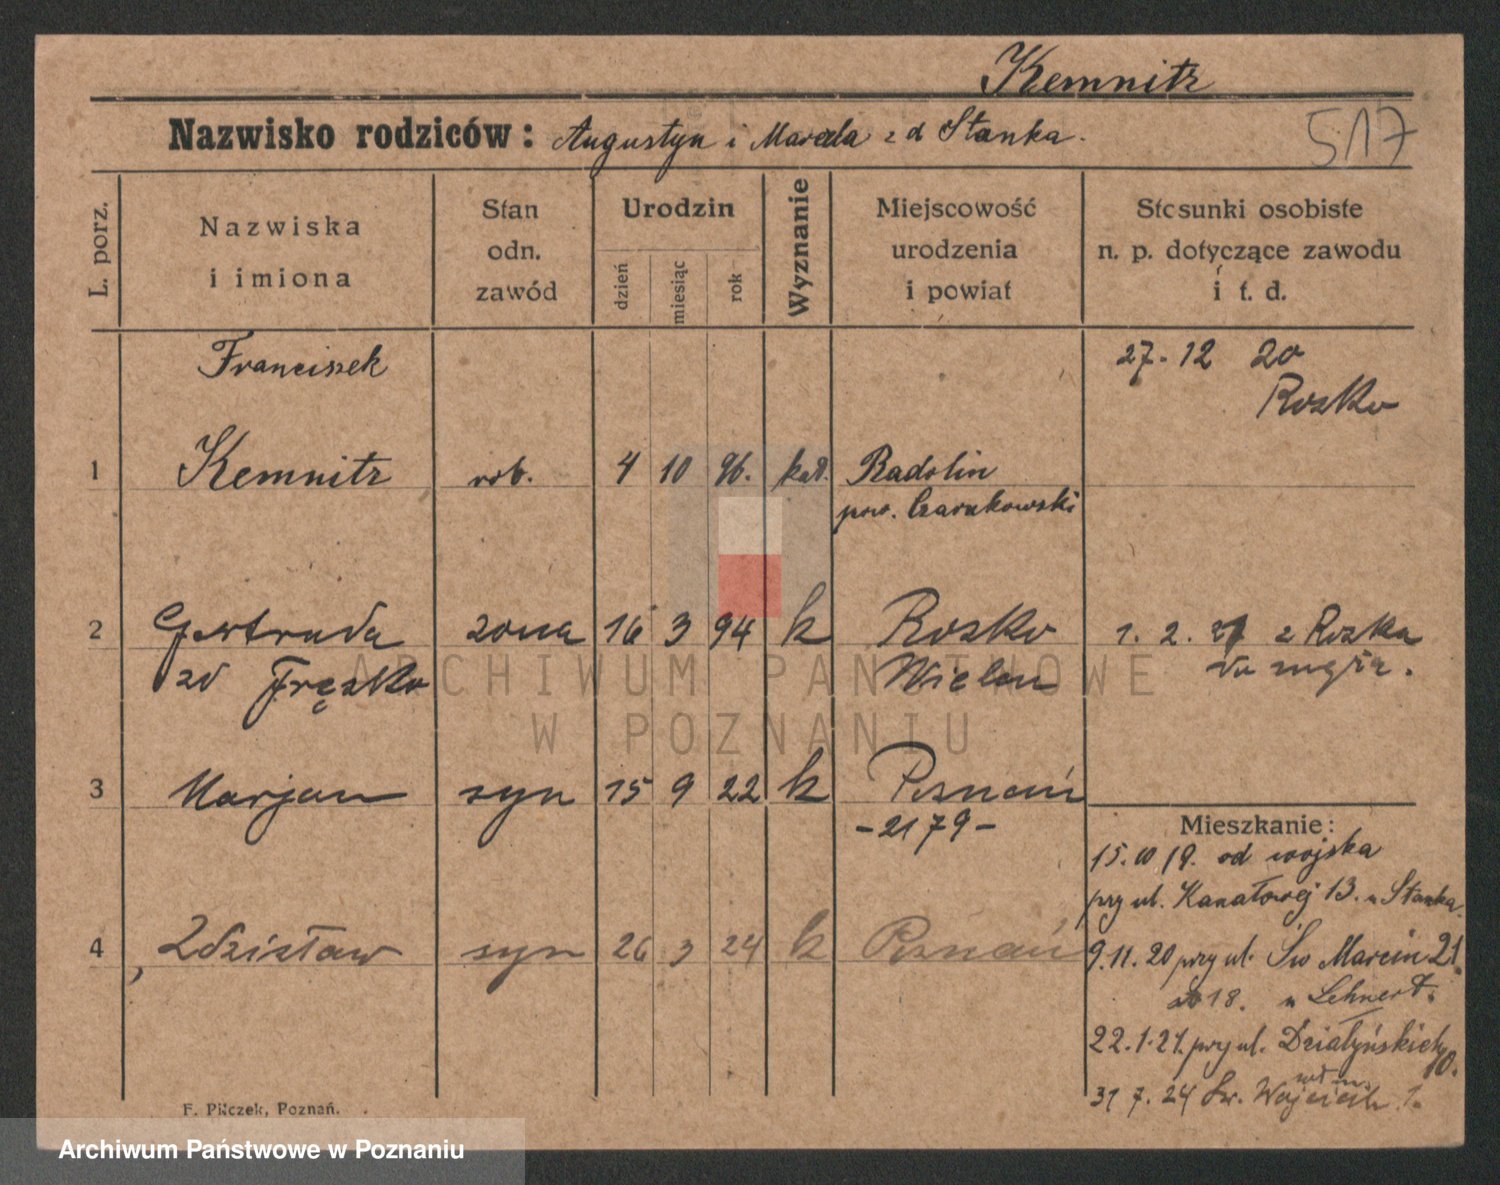 Kemnitz
Nazwisko rodziców: Augustyn i Marcela z d Stanka.
517
L. porz.
Nazwiska i imiona
Stan odn. zawód
Urodzin
dzień
miesiąc
rok
Wyznanie
Miejscowość urodzenia i powiat
Stosunki osobiste n. p. dotyczące zawodu i t. d.
Franciszek
27. 12 20
Rosko
1 Kemnitz rob. 4 10 96. kat. Radolin
pow. Czarnkowski
2 Gertruda żona 16 3 94 k Rosko 1. 2. 21 z Roska
zd Frąsko Wielen do męża.
3 Marjan syn 15 9 22 k Poznań
- 2179 -
Mieszkanie:
15. 10 19. od wojska
przy ul. Kanałowej 13. u Stanka.
4 Zdzisław syn 26 3 24 k Poznań
9. 11. 20 przy ul. Św Marcin 21.
18. u Lehnert.
22. 1. 21. przy ul. Działyńskich 10.
31 7. 24 Św. Wojciech 1.
F. Pilczek, Poznań.
ARCHIWUM PAŃSTWOWE
W POZNANIU
Archiwum Państwowe w Poznaniu